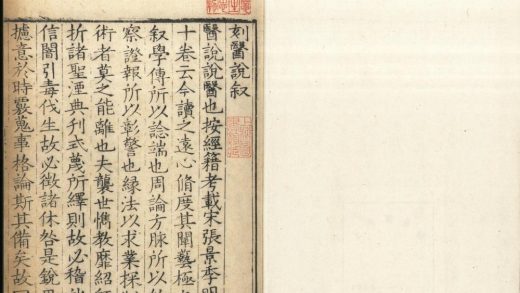 刻醫說叙
醫說說醫也按經籍考載宋張景季明
十卷云今讀之遠心脩度其闡藝極
叙學傳所以諗端也周論方脉所以
察證報所以彰警也緣法以求業探
術者莫之能離也夫襲世儁教靡紹
折諸聖湮典刊式蔑所繹則故必稽
信闇引毒伐生故必徵諸休咎是銳
攄意於時覈蒐事格論斯其備矣故